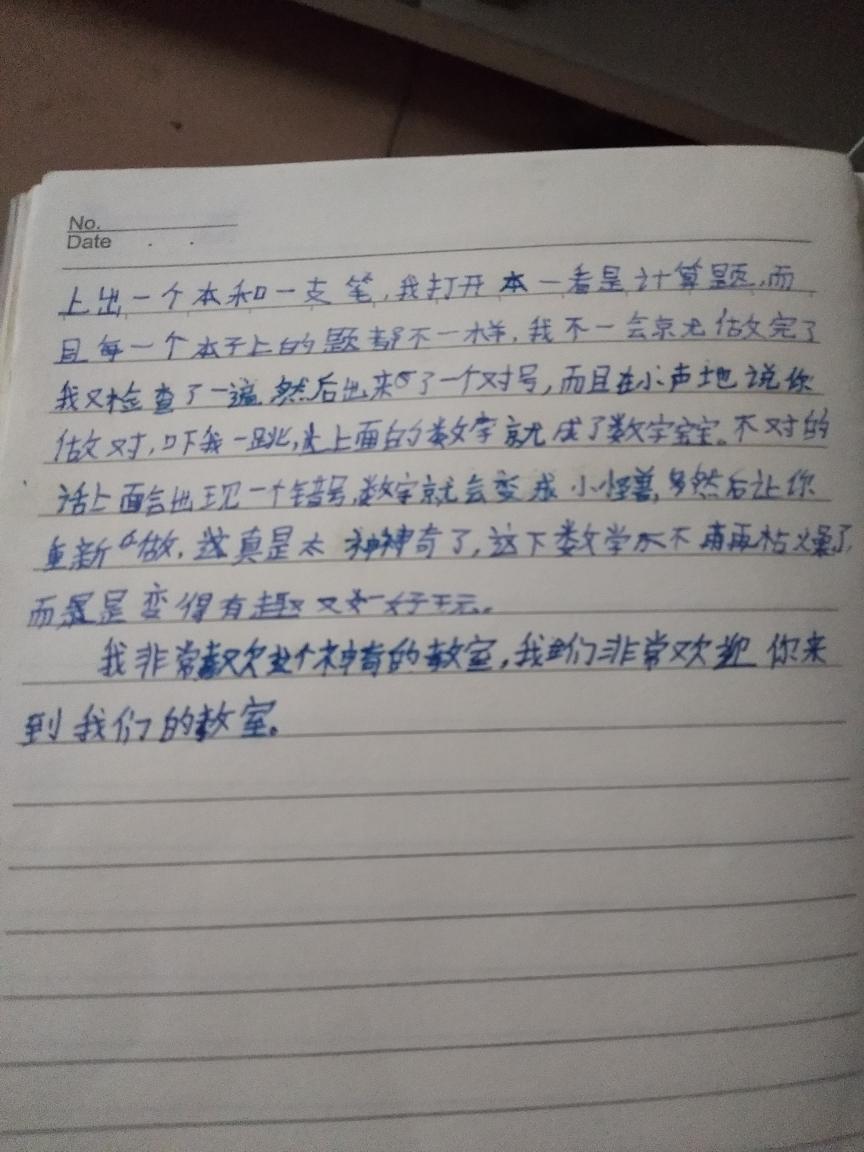 No.
Date
上出一个本和一支笔,我打开本一看是计算题,而
且每一个本子上的题都不一样,我不一会就做完了
我又检查了一遍,然后出来了一个对号,而且在小声地说你
做对,吓我一跳,上面的数字就成了数字宝宝。不对的
话上面会出现一个错号,数字就会变成小怪兽,然后让你
重新做,这真是太神奇了,这下数学永不再枯燥了,
而是变得有趣又好玩。
我非常喜欢这个神奇的教室,我们非常欢迎你来
到我们的教室。